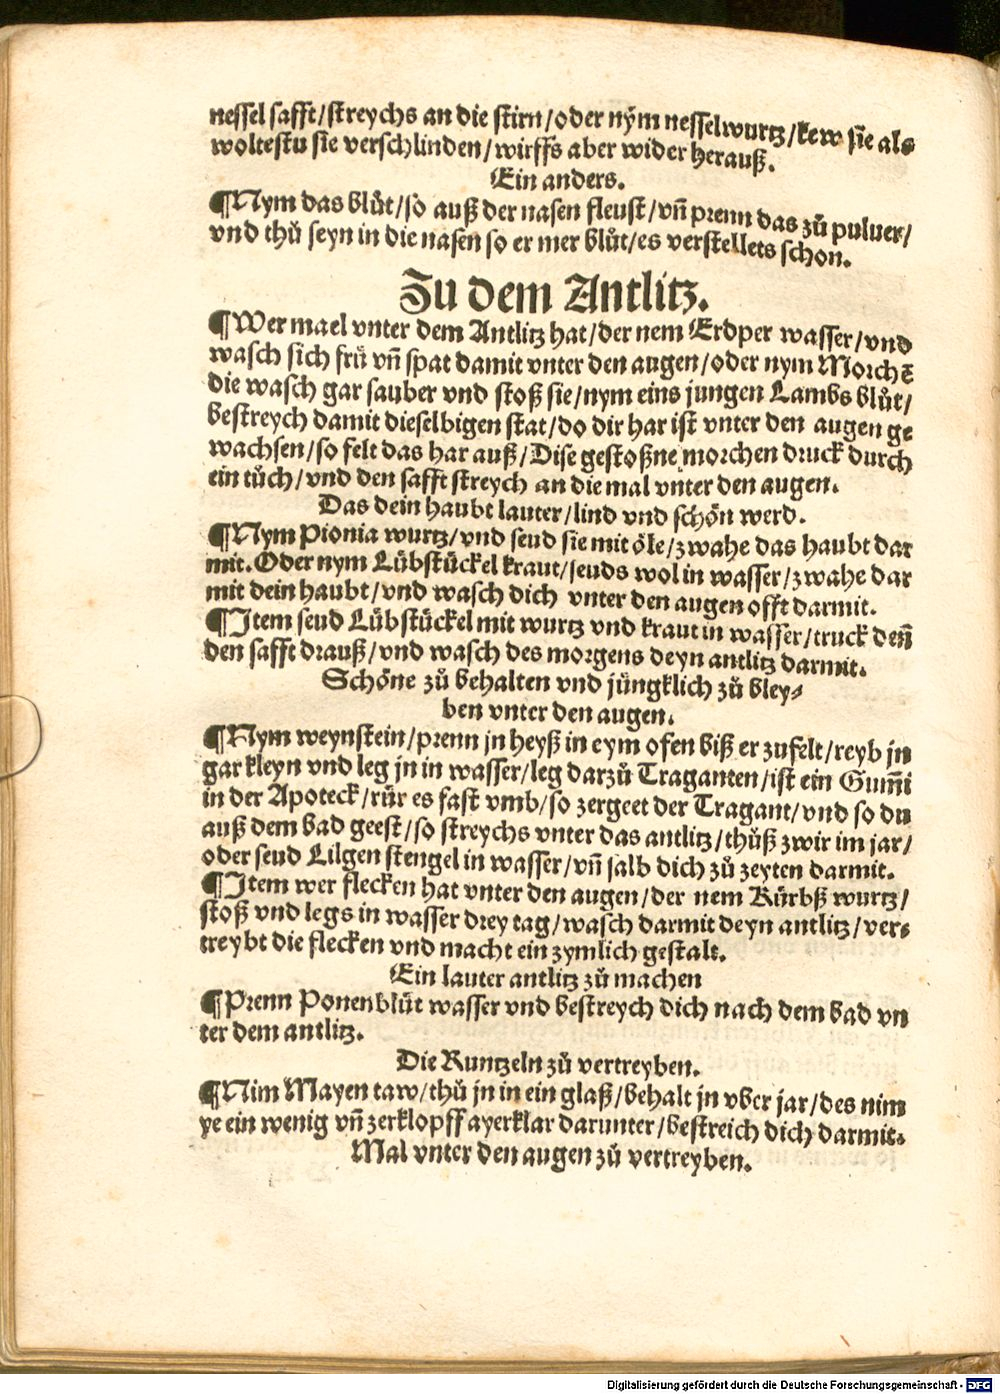 nessel safft/streychs an die stirn/oder nym nesselwurtz/kew sie als
woltestu sie verschlinden/wirffs aber wider herauß.
Ein anders.
¶Nym das blůt/so auß der nasen fleust/vn̄ prenn das zů puluer/
vnd thů seyn in die nasen so er mer blůt/es verstellets schon.
Zu dem Antlitz.
¶Wer mael vnter dem Antlitz hat/der nem Erdper wasser/vnd
wasch sich frü vn̄ spat damit vnter den augen/oder nym Morchē
die wasch gar sauber vnd stoß sie/nym eins jungen Lambs blůt/
bestreych damit dieselbigen stat/do dir har ist vnter den augen ge
wachsen/so felt das har auß/Dise gestoßne morchen druck durch
ein tůch/vnd den safft streych an die mal vnter den augen.
Das dein haubt lauter/lind vnd schön werd.
¶Nym Pionia wurtz/vnd seud sie mit öle/zwahe das haubt dar
mit. Oder nym Lübstückel kraut/seuds wol in wasser/zwahe dar
mit dein haubt/vnd wasch dich vnter den augen offt darmit.
¶Item seud Lübstückel mit wurtz vnd kraut in wasser/truck den̄
den safft drauß/vnd wasch des morgens deyn antlitz darmit.
Schöne zů behalten vnd jüngklich zů bley⸗
ben vnter den augen.
¶Nym weynstein/prenn jn heyß in eym ofen biß er zufelt/reyb jn
gar kleyn vnd leg jn in wasser/leg darzů Traganten/ist ein Gum̄i
in der Apoteck/rür es fast vmb/so zergeet der Tragant/vnd so du
auß dem bad geest/so streychs vnter das antlitz/thůß zwir im jar/
oder seud Lilgen stengel in wasser/vn̄ salb dich zů zeyten darmit.
¶Item wer flecken hat vnter den augen/der nem Kürbß wurtz/
stoß vnd legs in wasser drey tag/wasch darmit deyn antlitz/ver⸗
treybt die flecken vnd macht ein zymlich gestalt.
Ein lauter antlitz zů machen
¶Prenn Ponenblüt wasser vnd bestreych dich nach dem bad vn
ter dem antlitz.
Die Runtzeln zů vertreyben.
¶Nim Mayen taw/thů jn in ein glaß/behalt jn vber jar/des nim
ye ein wenig vn̄ zerklopff ayerklar darunter/bestreich dich darmit.
Mal vnter den augen zů vertreyben.
Digitalisierung gefördert durch die Deutsche Forschungsgemeinschaft - DFG